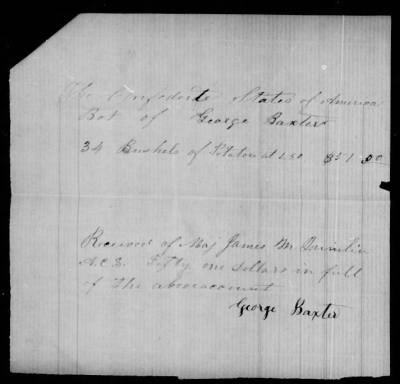 The Confederate States of America
Bot of George Baxter
34 Bushels of Potatoes at 1 50 $51 00
Received of Maj James M Quinlin
A.C.S. Fifty one dollars in full
of the above account
George Baxter